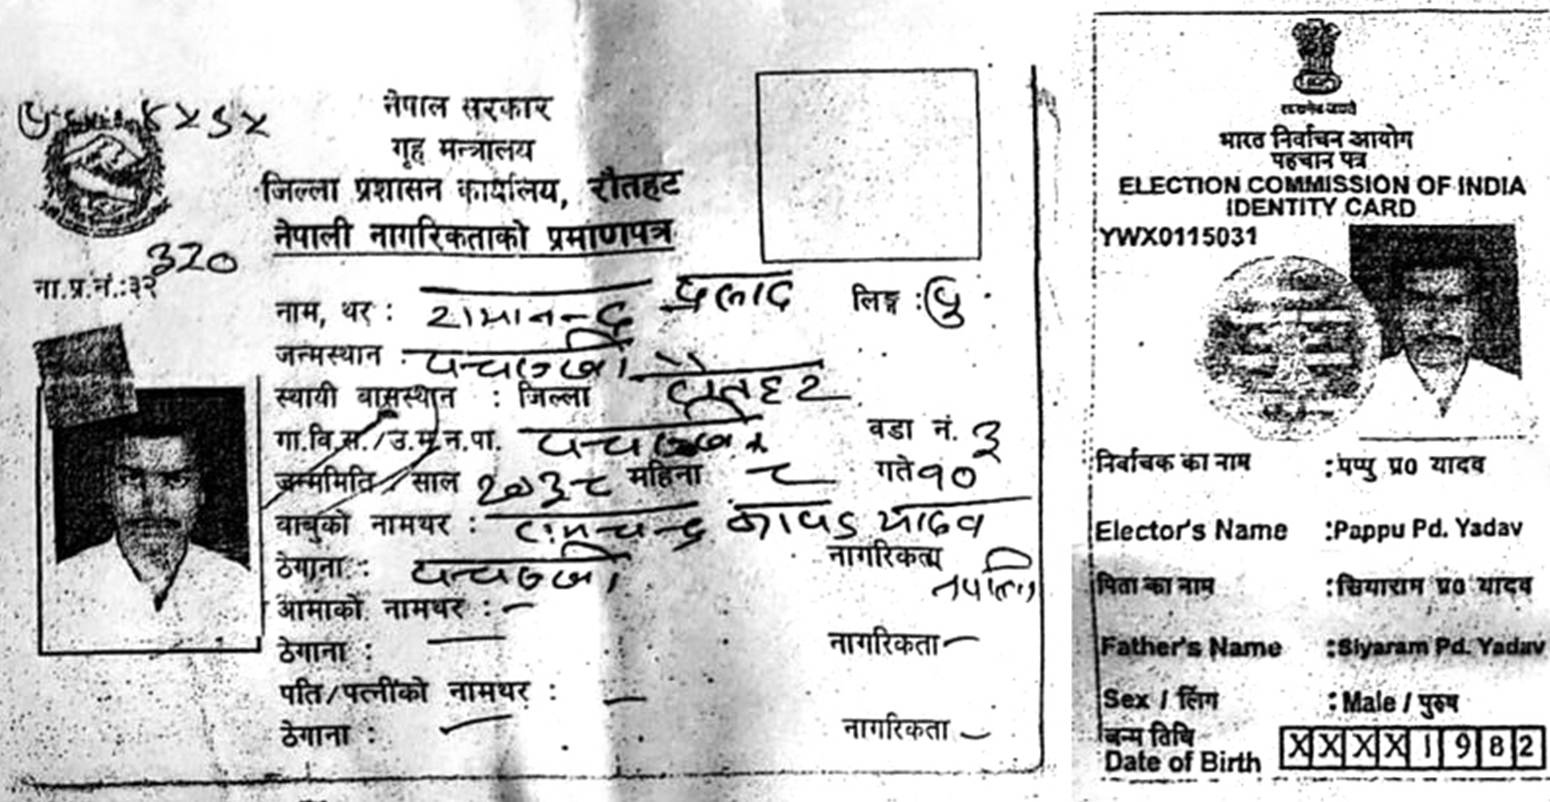 नेपाल सरकार
गृह मन्त्रालय
जिल्ला प्रशासन कार्यालय, रौतहट
नेपाली नागरिकताको प्रमाणपत्र
ना.प्र.नं.:३२ 320
नाम, थर : रामानन्द प्रसाद लिङ्ग : पु
जन्मस्थान :
स्थायी बासस्थान : जिल्ला रौतहट
गा.वि.स./उ.म.न.पा. वडा नं. ३
जन्ममिति / साल २०३८ महिना ८ गते १०
बाबुको नामथर : यादव
ठेगाना : नागरिकता
आमाको नामथर : –
ठेगाना : – नागरिकता –
पति/पत्नीको नामथर : –
ठेगाना : – नागरिकता –
भारत निर्वाचन आयोग
पहचान पत्र
ELECTION COMMISSION OF INDIA
IDENTITY CARD
YWX0115031
निर्वाचक का नाम : पप्पु प्र० यादव
Elector's Name : Pappu Pd. Yadav
पिता का नाम : सियाराम प्र० यादव
Father's Name : Siyaram Pd. Yadav
Sex / लिंग : Male / पुरुष
जन्म तिथि
Date of Birth XXXX1982